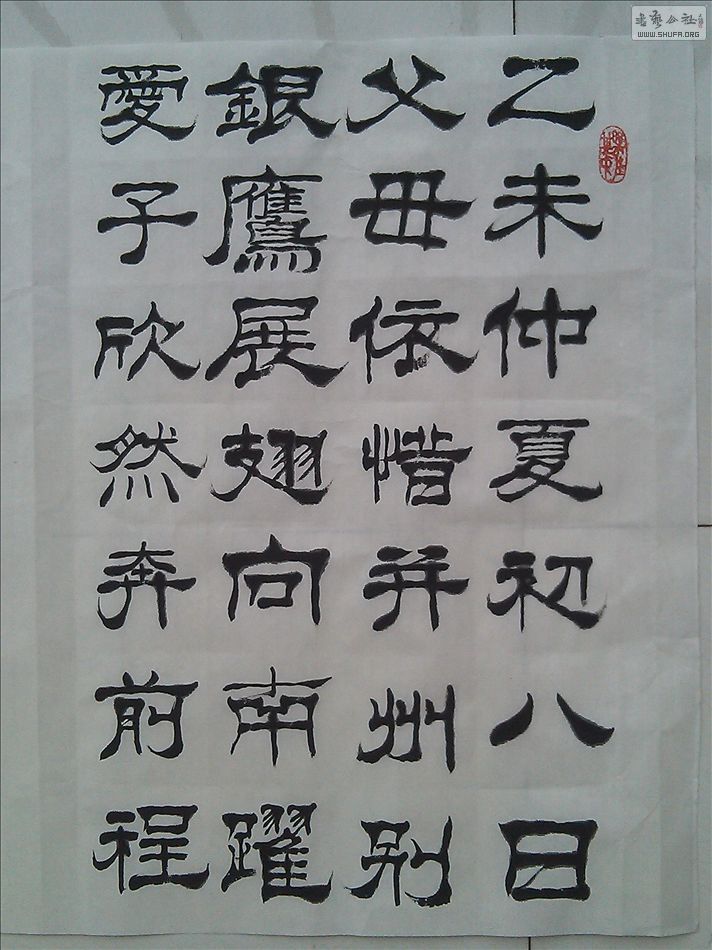 乙未仲夏初八日
父母依惜并州别
銀鷹展翅向南躍
愛子欣然奔前程
书艺公社
WWW.SHUFA.ORG